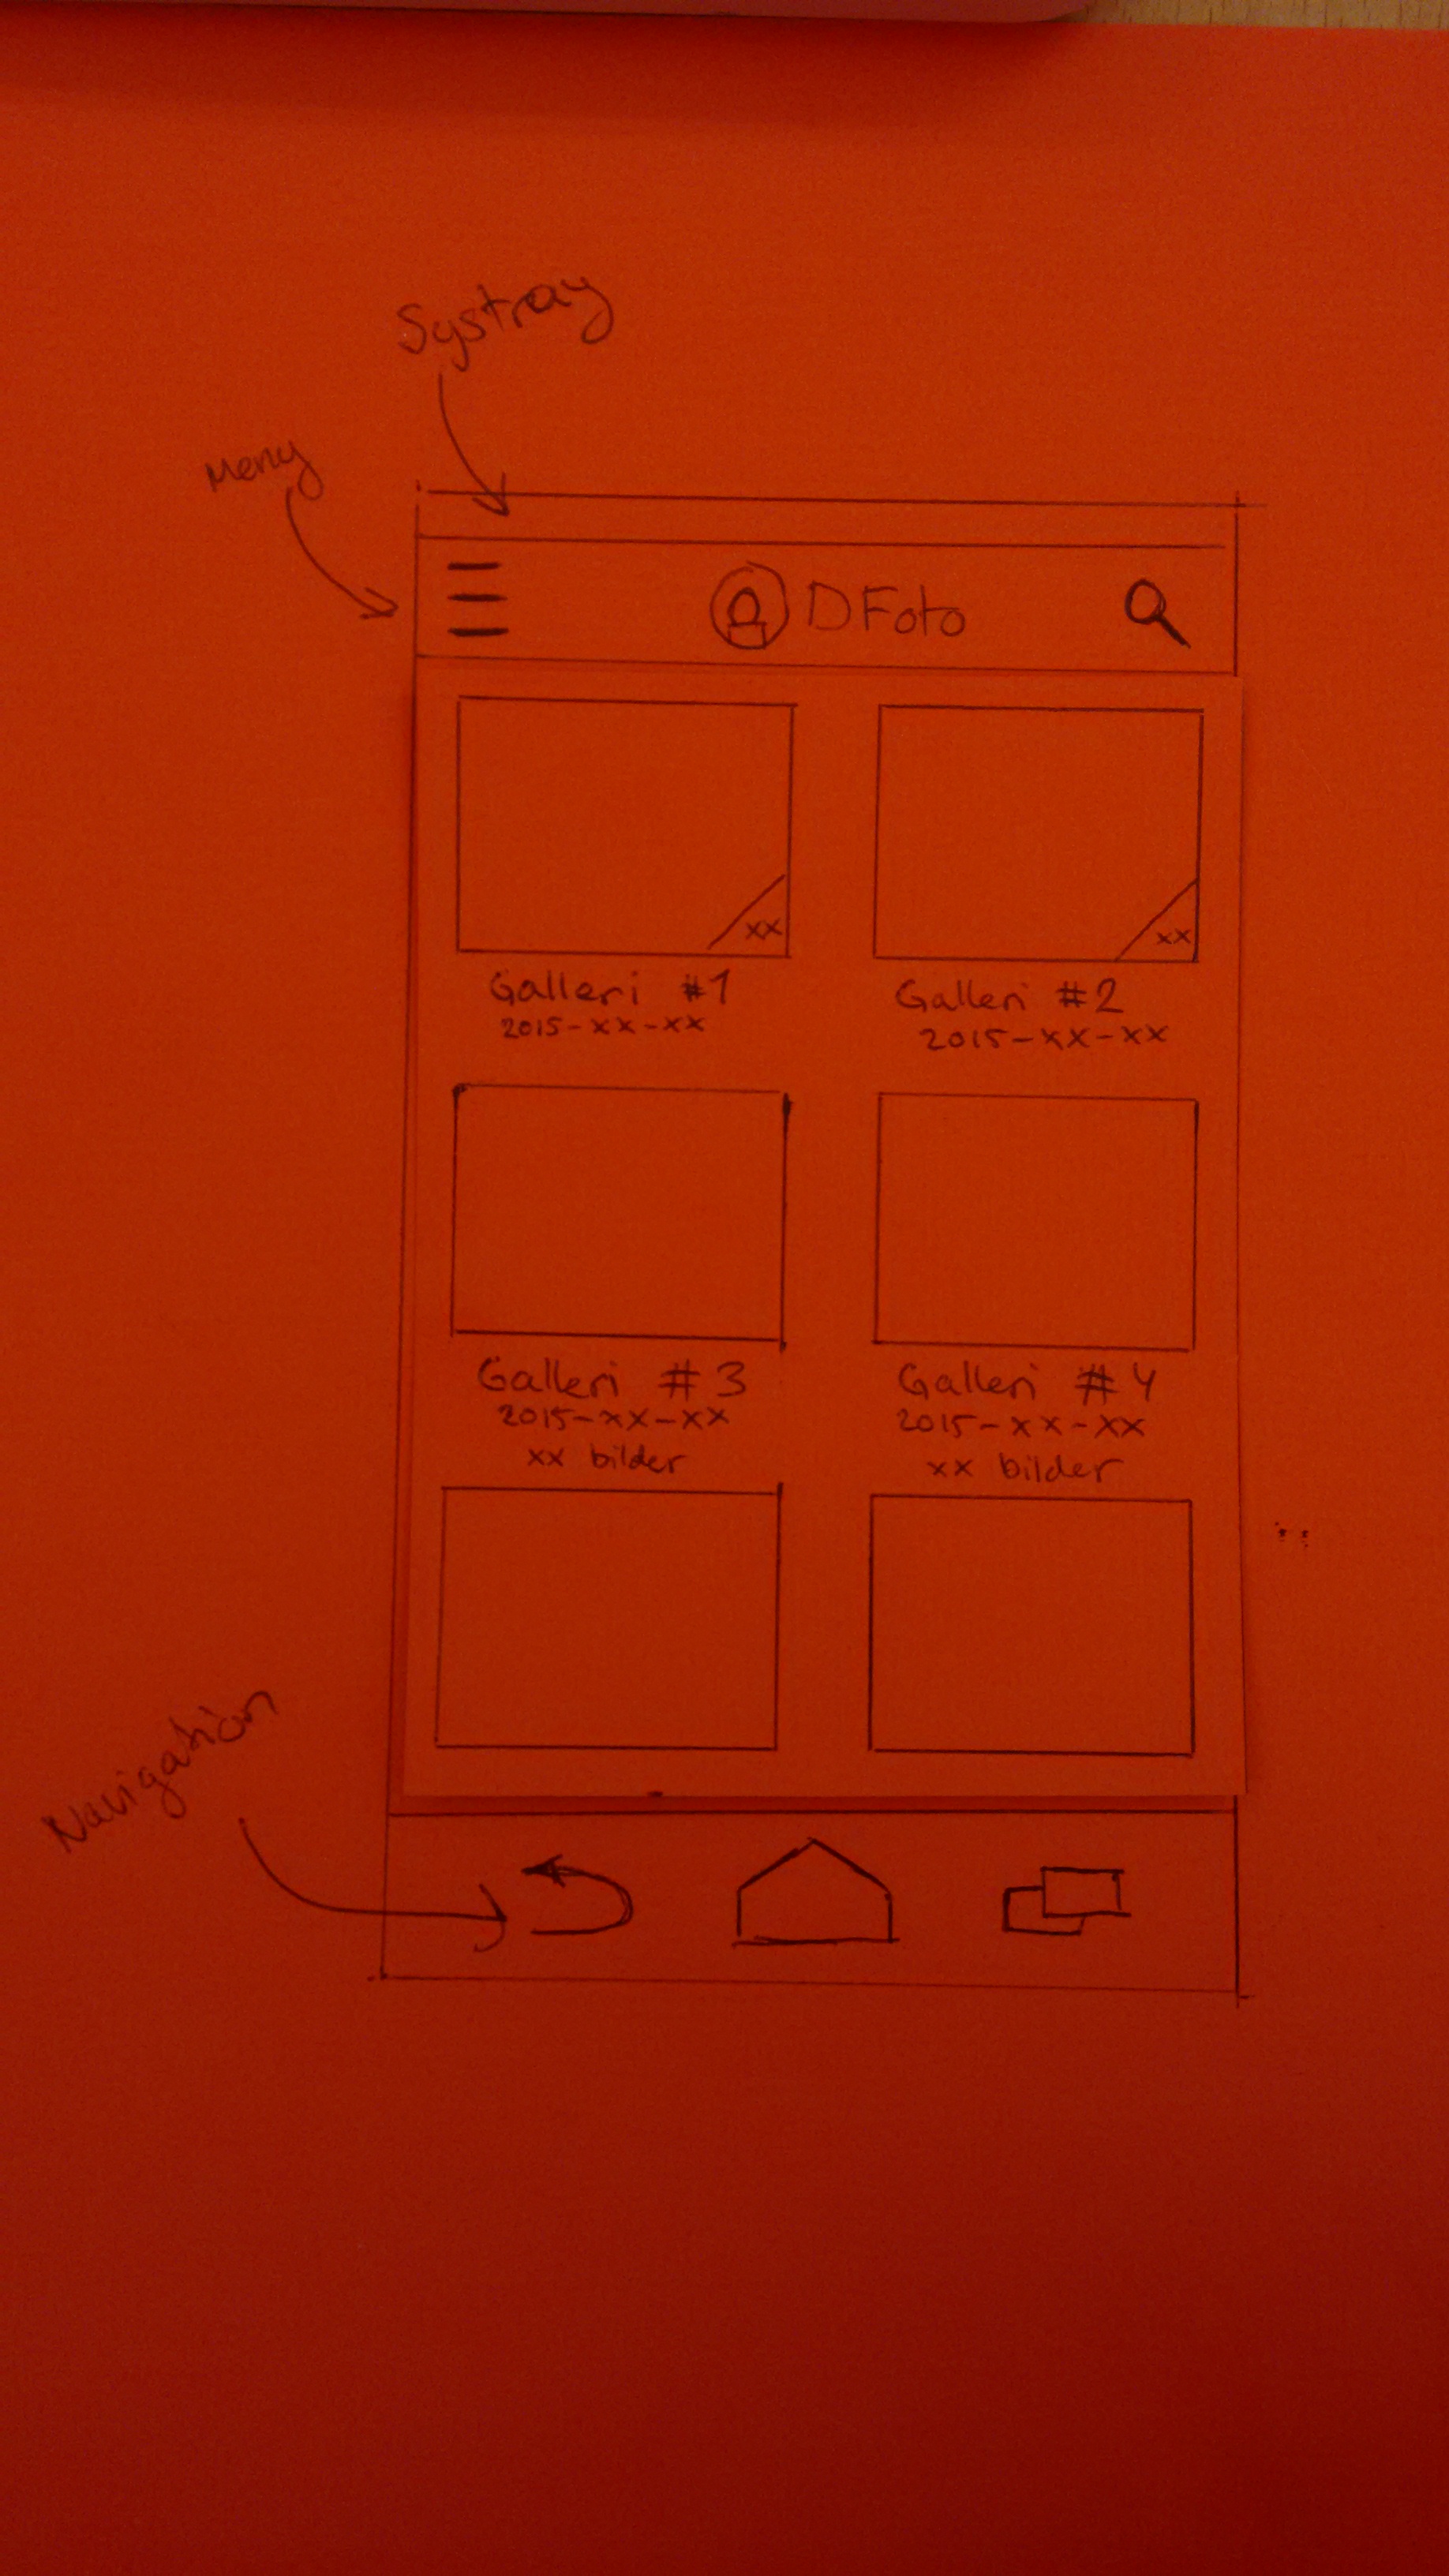 Systray
Meny
DFoto
xx
xx
Galleri #1
2015-xx-xx
Galleri #2
2015-xx-xx
Galleri #3
2015-xx-xx
xx bilder
Galleri #4
2015-xx-xx
xx bilder
Navigation